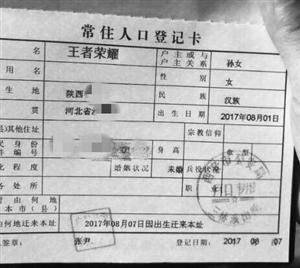 常住人口登记卡
名 王者荣耀 户主或与户主关系 孙女
用名 性别 女
生地 陕西 民族 汉族
贯 河北省 出生日期 2017年08月01日
其他住址 宗教信仰
民身份件编号 身高
化程度 婚姻状况 未婚 兵役状况
务处所 职业
由何地本市(县)
由何地迁来本址 2017年08月07日因出生迁来本址
签章: 张尹 登记日期: 2017 08 07